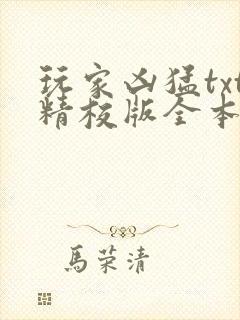 玩家凶猛txt
精校版全本
馬荣清